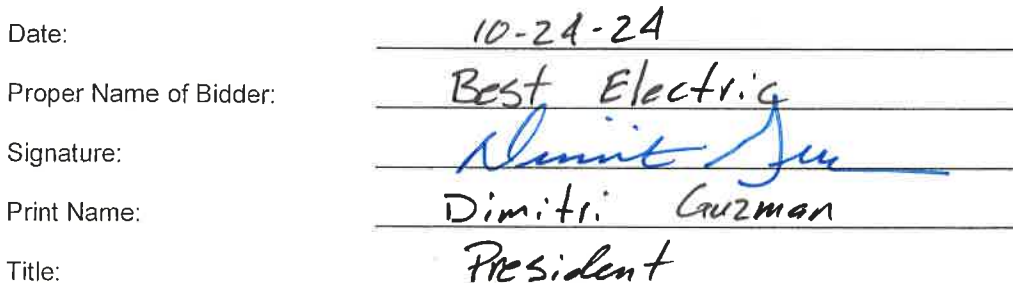 Date: 10-24-24
Proper Name of Bidder: Best Electric
Signature:
Print Name: Dimitri Guzman
Title: President